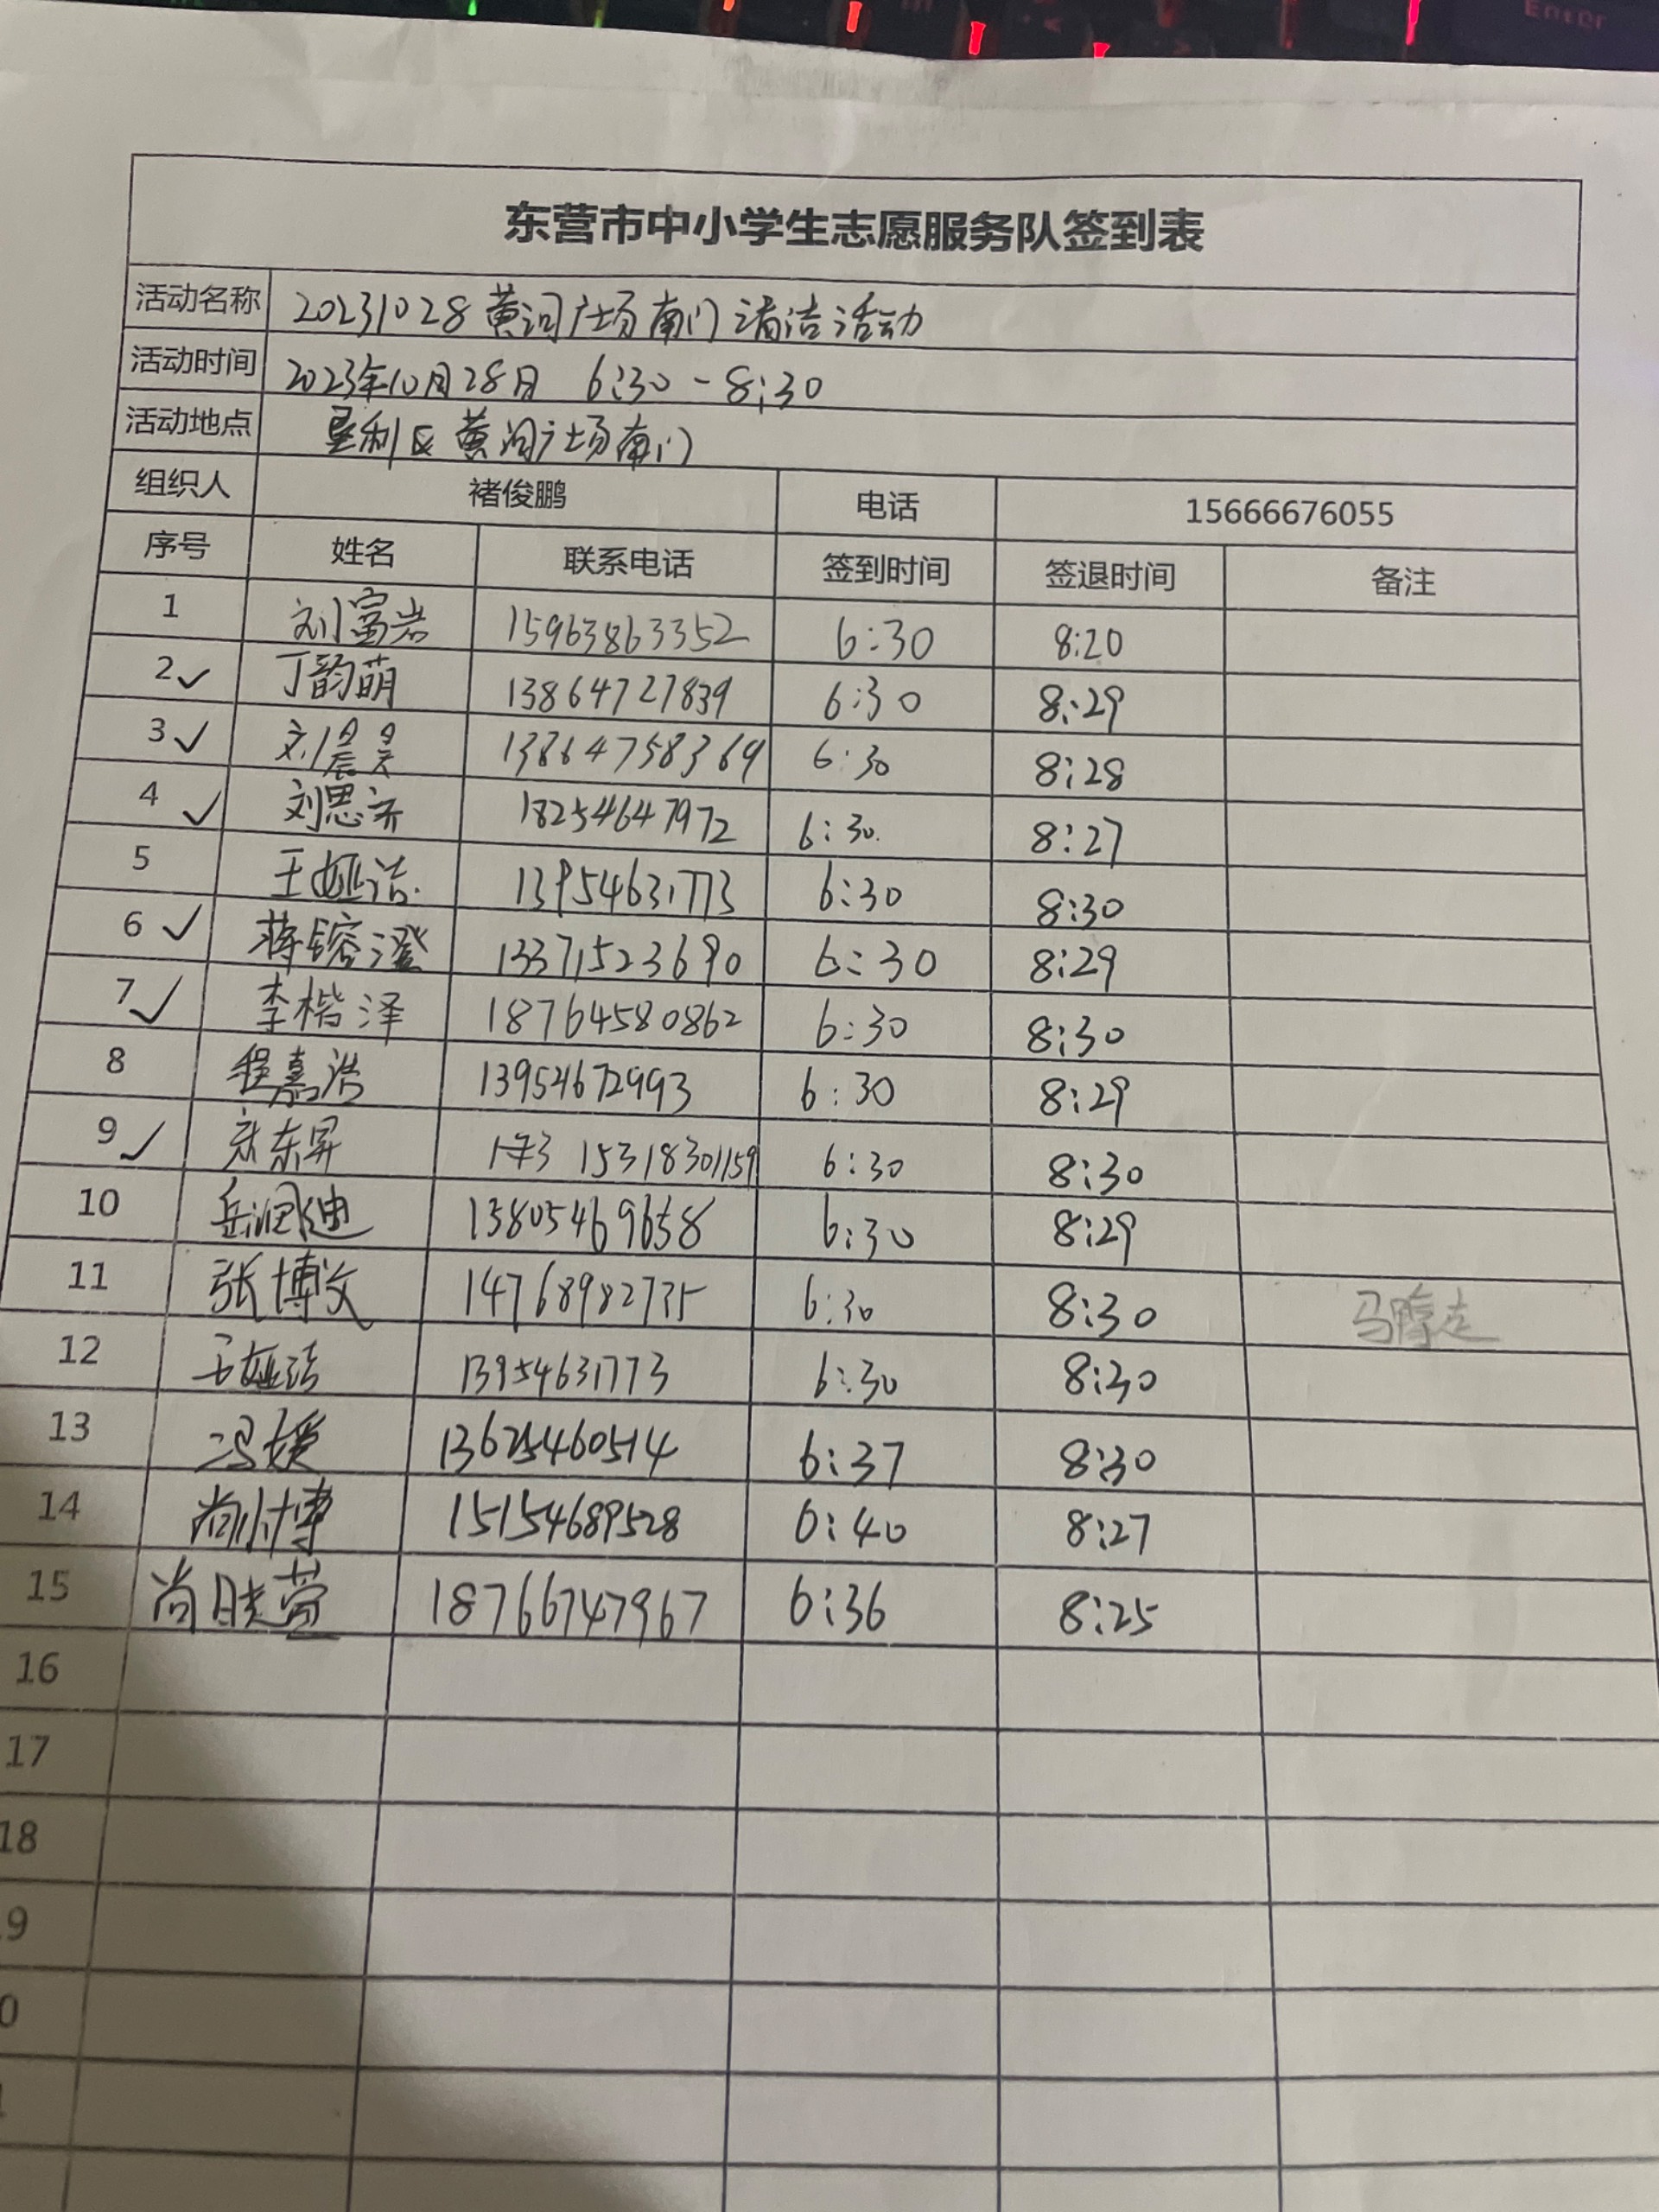 Enter
东营市中小学生志愿服务队签到表
活动名称 20231028黄河广场南门清洁活动
活动时间 2023年10月28日 6:30-8:30
活动地点 垦利区黄河广场南门
组织人 褚俊鹏 电话 15666676055
序号 姓名 联系电话 签到时间 签退时间 备注
1 刘富岩 15963863352 6:30 8:20
2 ✓ 丁韵萌 13864727839 6:30 8:29
3 ✓ 刘晨昊 13864758369 6:30 8:28
4 ✓ 刘思齐 18254647972 6:30. 8:27
5 王娅洁. 13954631773 6:30 8:30
6 ✓ 蒋镕澄 13371523690 6:30 8:29
7 ✓ 李楷泽 18764580862 6:30 8:30
8 程嘉浩 13954672993 6:30 8:29
9 ✓ 东昇 15318301159 6:30 8:30
10 岳润迪 13805469658 6:30 8:29
11 张博文 14768982735 6:30 8:30 马
12 王娅洁 13954631773 6:30 8:30
13 冯媛 13625460514 6:37 8:30
14 尚小博 15154689528 6:40 8:27
15 尚晓萱 18766747967 6:36 8:25
16
17
18
9
0